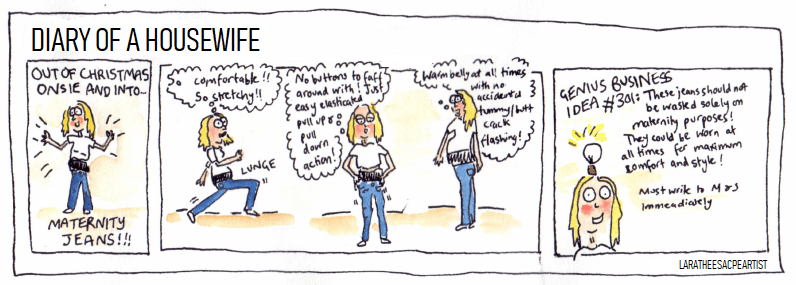 DIARY OF A HOUSEWIFE
OUT OF CHRISTMAS
ONSIE AND INTO...
MATERNITY
JEANS!!!
comfortable!!
So stretchy!!
LUNGE
No buttons to faff
around with! Just
easy elasticated
pull up &
pull
down
action!
Warm belly at all times
with no
accident'd
tummy/butt
crack
flashing!
GENIUS BUSINESS
IDEA #301: These jeans should not
be wasked solely on
maternity purposes!
They could be worn at
all times for maximum
comfort and style!
Must write to M&S
immeadiately
LARATHEESACPEARTIST